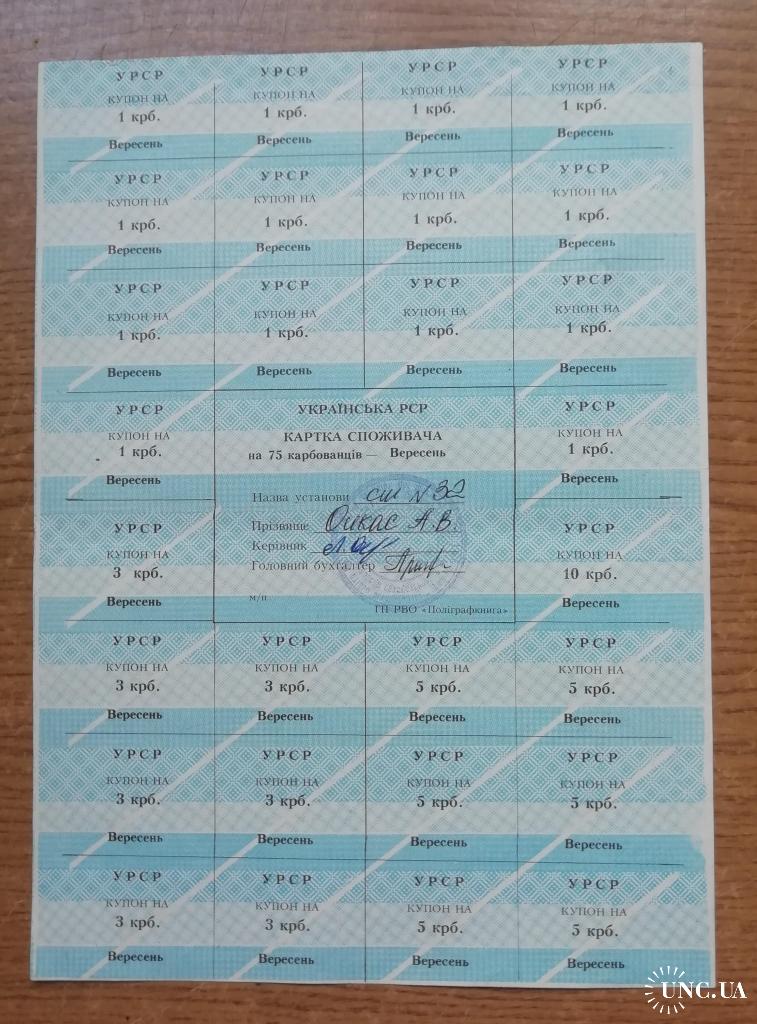 УРСР УРСР УРСР УРСР
КУПОН НА КУПОН НА КУПОН НА КУПОН НА
1 крб. 1 крб. 1 крб. 1 крб.
Вересень Вересень Вересень Вересень
УРСР УРСР УРСР УРСР
КУПОН НА КУПОН НА КУПОН НА КУПОН НА
1 крб. 1 крб. 1 крб. 1 крб.
Вересень Вересень Вересень Вересень
УРСР УРСР УРСР УРСР
КУПОН НА КУПОН НА КУПОН НА КУПОН НА
1 крб. 1 крб. 1 крб. 1 крб.
Вересень Вересень Вересень Вересень
УРСР
КУПОН НА
1 крб.
Вересень
УРСР
КУПОН НА
3 крб.
Вересень
УКРАЇНСЬКА РСР
КАРТКА СПОЖИВАЧА
на 75 карбованців — Вересень
Назва установи сш N 32
Прізвище А.В.
Керівник
Головний бухгалтер
м/п
ГП РВО «Поліграфкнига»
УРСР
КУПОН НА
1 крб.
Вересень
УРСР
КУПОН НА
10 крб.
Вересень
УРСР УРСР УРСР УРСР
КУПОН НА КУПОН НА КУПОН НА КУПОН НА
3 крб. 3 крб. 5 крб. 5 крб.
Вересень Вересень Вересень Вересень
УРСР УРСР УРСР УРСР
КУПОН НА КУПОН НА КУПОН НА КУПОН НА
3 крб. 3 крб. 5 крб. 5 крб.
Вересень Вересень Вересень Вересень
УРСР УРСР УРСР УРСР
КУПОН НА КУПОН НА КУПОН НА КУПОН НА
3 крб. 3 крб. 5 крб. 5 крб.
Вересень Вересень Вересень Вересень
UNC.UA